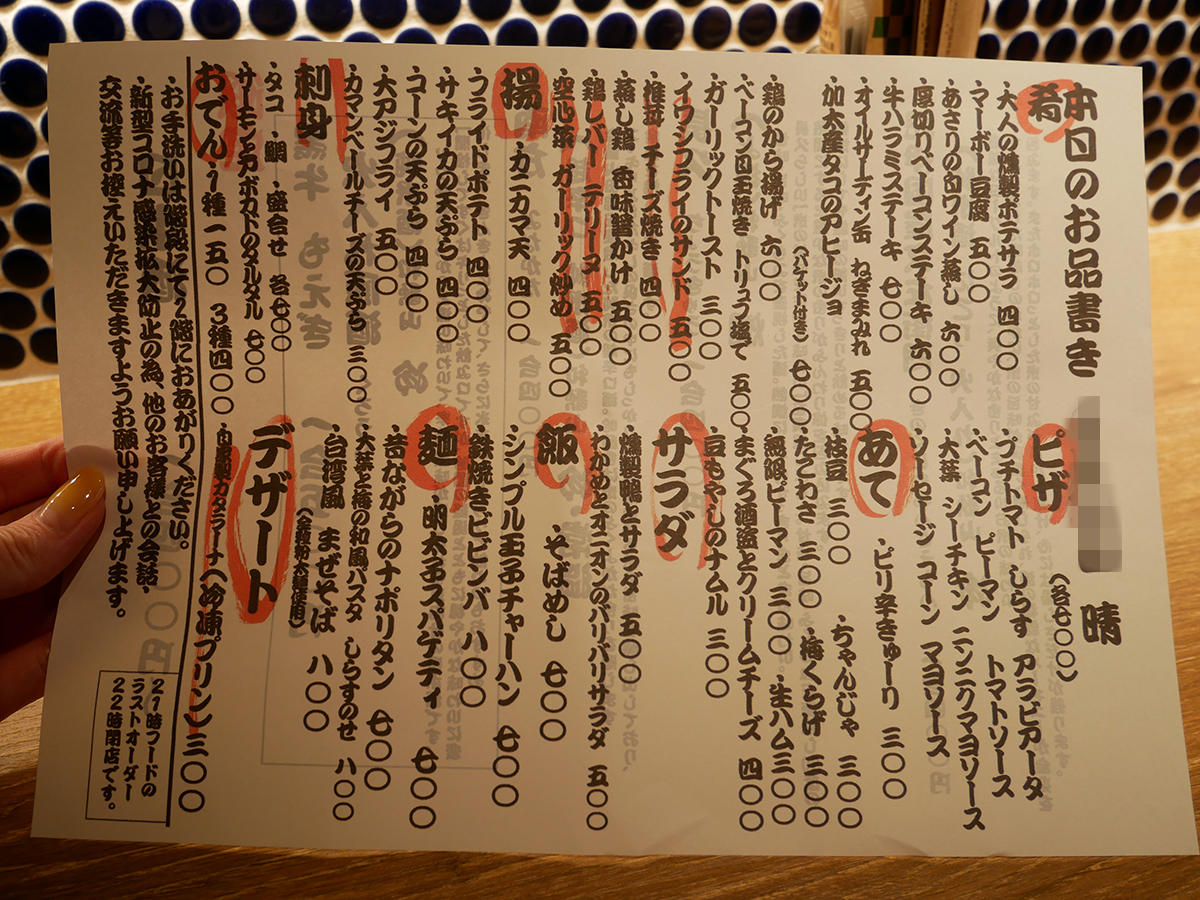 本日のお品書き 晴
肴
・大人の燻製ポテサラ 四〇〇
・マーボー豆腐 五〇〇
・あさりの白ワイン蒸し 六〇〇
・厚切りベーコンステーキ 六〇〇
・牛ハラミステーキ 七〇〇
・オイルサーディン缶 ねぎまみれ 五〇〇
・加太産タコのアヒージョ
(バケット付き) 七〇〇
・鶏のから揚げ 六〇〇
・ベーコン目玉焼き トリュフ塩で 五〇〇
・ガーリックトースト 三〇〇
・イワシフライのサンド 五〇〇
・椎茸チーズ焼き 四〇〇
・蒸し鶏 香味醤かけ 五〇〇
・鶏レバーテリーヌ 五〇〇
・空心菜 ガーリック炒め 五〇〇
揚 ・カニカマ天 四〇〇
・フライドポテト 四〇〇
・サキイカの天ぷら 四〇〇
・コーンの天ぷら 四〇〇
・大アジフライ 五〇〇
・カマンベールチーズの天ぷら 三〇〇
刺身
・タコ ・鯛 ・盛合せ 各七〇〇
・サーモンとアボカドのタルタル 七〇〇
おでん ・1種 一五〇 3種四〇〇
ピザ (各七〇〇)
・プチトマト しらす アラビアータ
・ベーコン ピーマン トマトソース
・大葉 シーチキン ニンニクマヨソース
・ソーセージ コーン マヨソース
あて ・ピリ辛きゅーり 三〇〇
・枝豆 三〇〇 ・ちゃんじゃ 三〇〇
・たこわさ 三〇〇 ・梅くらげ 三〇〇
・無限ピーマン 三〇〇 ・生ハム三〇〇
・まぐろ酒盗とクリームチーズ 四〇〇
・豆もやしのナムル 三〇〇
サラダ
・燻製鴨とサラダ 五〇〇
・わかめとオニオンのバリバリサラダ 五〇〇
飯 ・そばめし 七〇〇
・シンプル玉子チャーハン 七〇〇
・鉄焼きビビンバ 八〇〇
麺 ・明太子スパゲティ 七〇〇
・昔ながらのナポリタン 七〇〇
・大葉と梅の和風パスタ しらすのせ 八〇〇
・台湾風 まぜそば 八〇〇
(全粒粉太麺使用)
デザート
・自家製カタラーナ(冷凍プリン)三〇〇
・お手洗いは階段にて2階におあがりください。
・新型コロナ感染拡大防止の為、他のお客様との会話・
交流等お控えいただきますようお願い申し上げます。
21時フードの
ラストオーダー
22時閉店です。